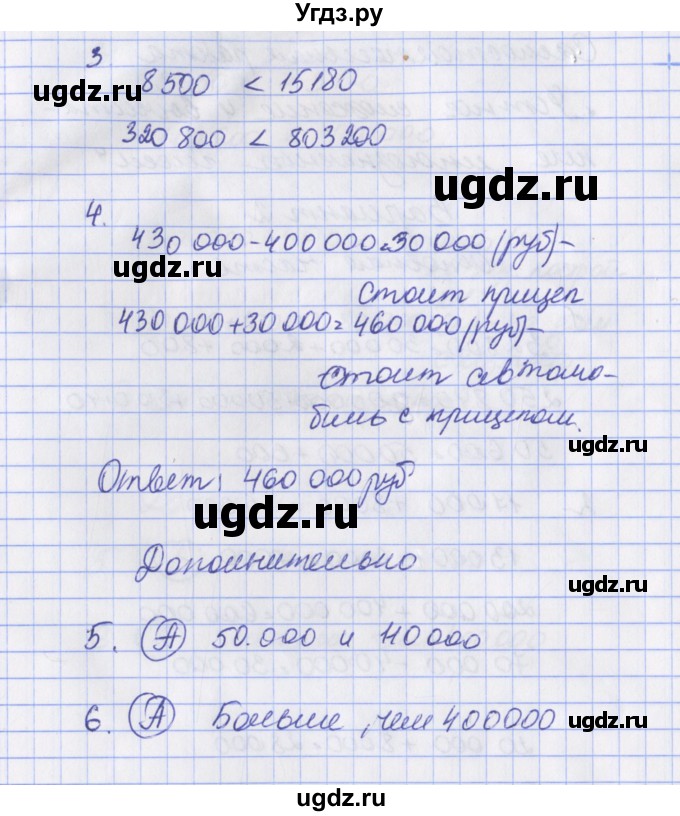 Угдз.ру
3
8500 < 15180
ugdz.ru
320 800 < 803200
ugdz.ru
4.
430 000-400 000=30 000 (руб)-
ugdz.ru
стоит прицеп
430 000+30 000= 460 000 (руб)-
стоит автомо-
биль с прицепом.
ugdz.ru
Ответ: 460 000 руб
ugdz.ru
Дополнительно
ugdz.ru
5. А 50.000 и 40000
6. А Больше, чем 400000
ugdz.ru
ugdz.ru